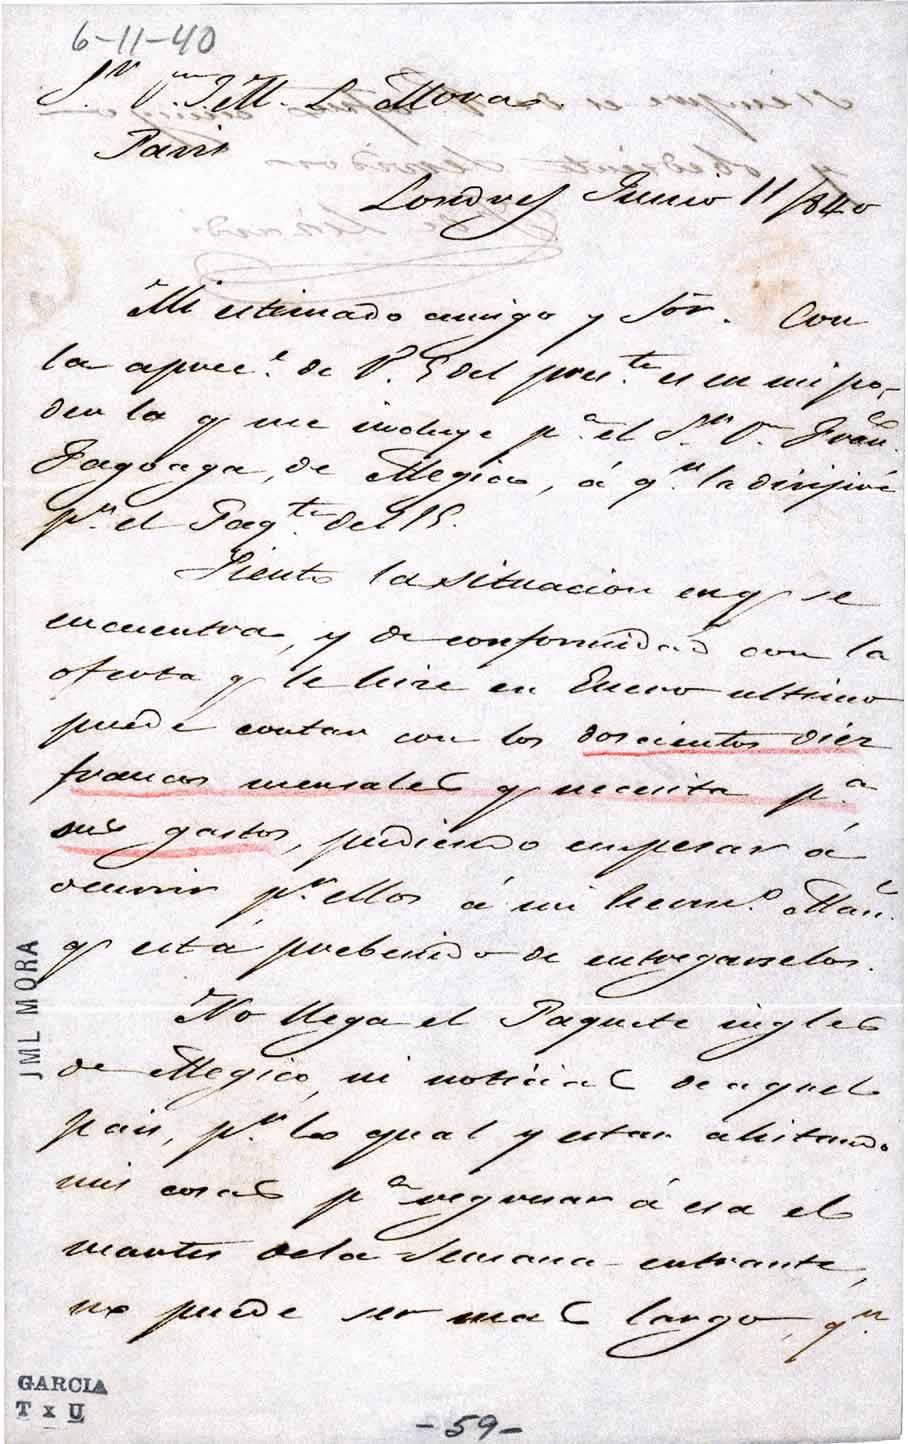 6-11-40
Sr. Dn. J. M. L. Mora
Paris
Londres Junio 11/840
Mi estimado amigo y Sõr. Con
la aprec.e de V. 5 del pres.te es en mi po-
der la q me incluye p.a el Sr. Dn. Fran.co
Fagoaga, de Megico, á q.n la dirijiré
p.r el Paq.te del 15.
Siento la situacion en q se
encuentra, y de conformidad con la
oferta q le hice en Enero ultimo
puede contar con los doscientos diez
francos mensales q necesita p.a
sus gastos, pudiendo empesar á
ocurrir p.r ellos á mi herm.o Man.l
q está prebenido de entregarselos.
No llega el Paquete ingles
de Megico, ni noticias de aquel
pais, p.r lo qual y estar alistando
mis cosas p.a regresar á esa el
martes de la semana entrante,
no puede ser mas largo, q.n
JML MORA
GARCIA
T x U
-59-